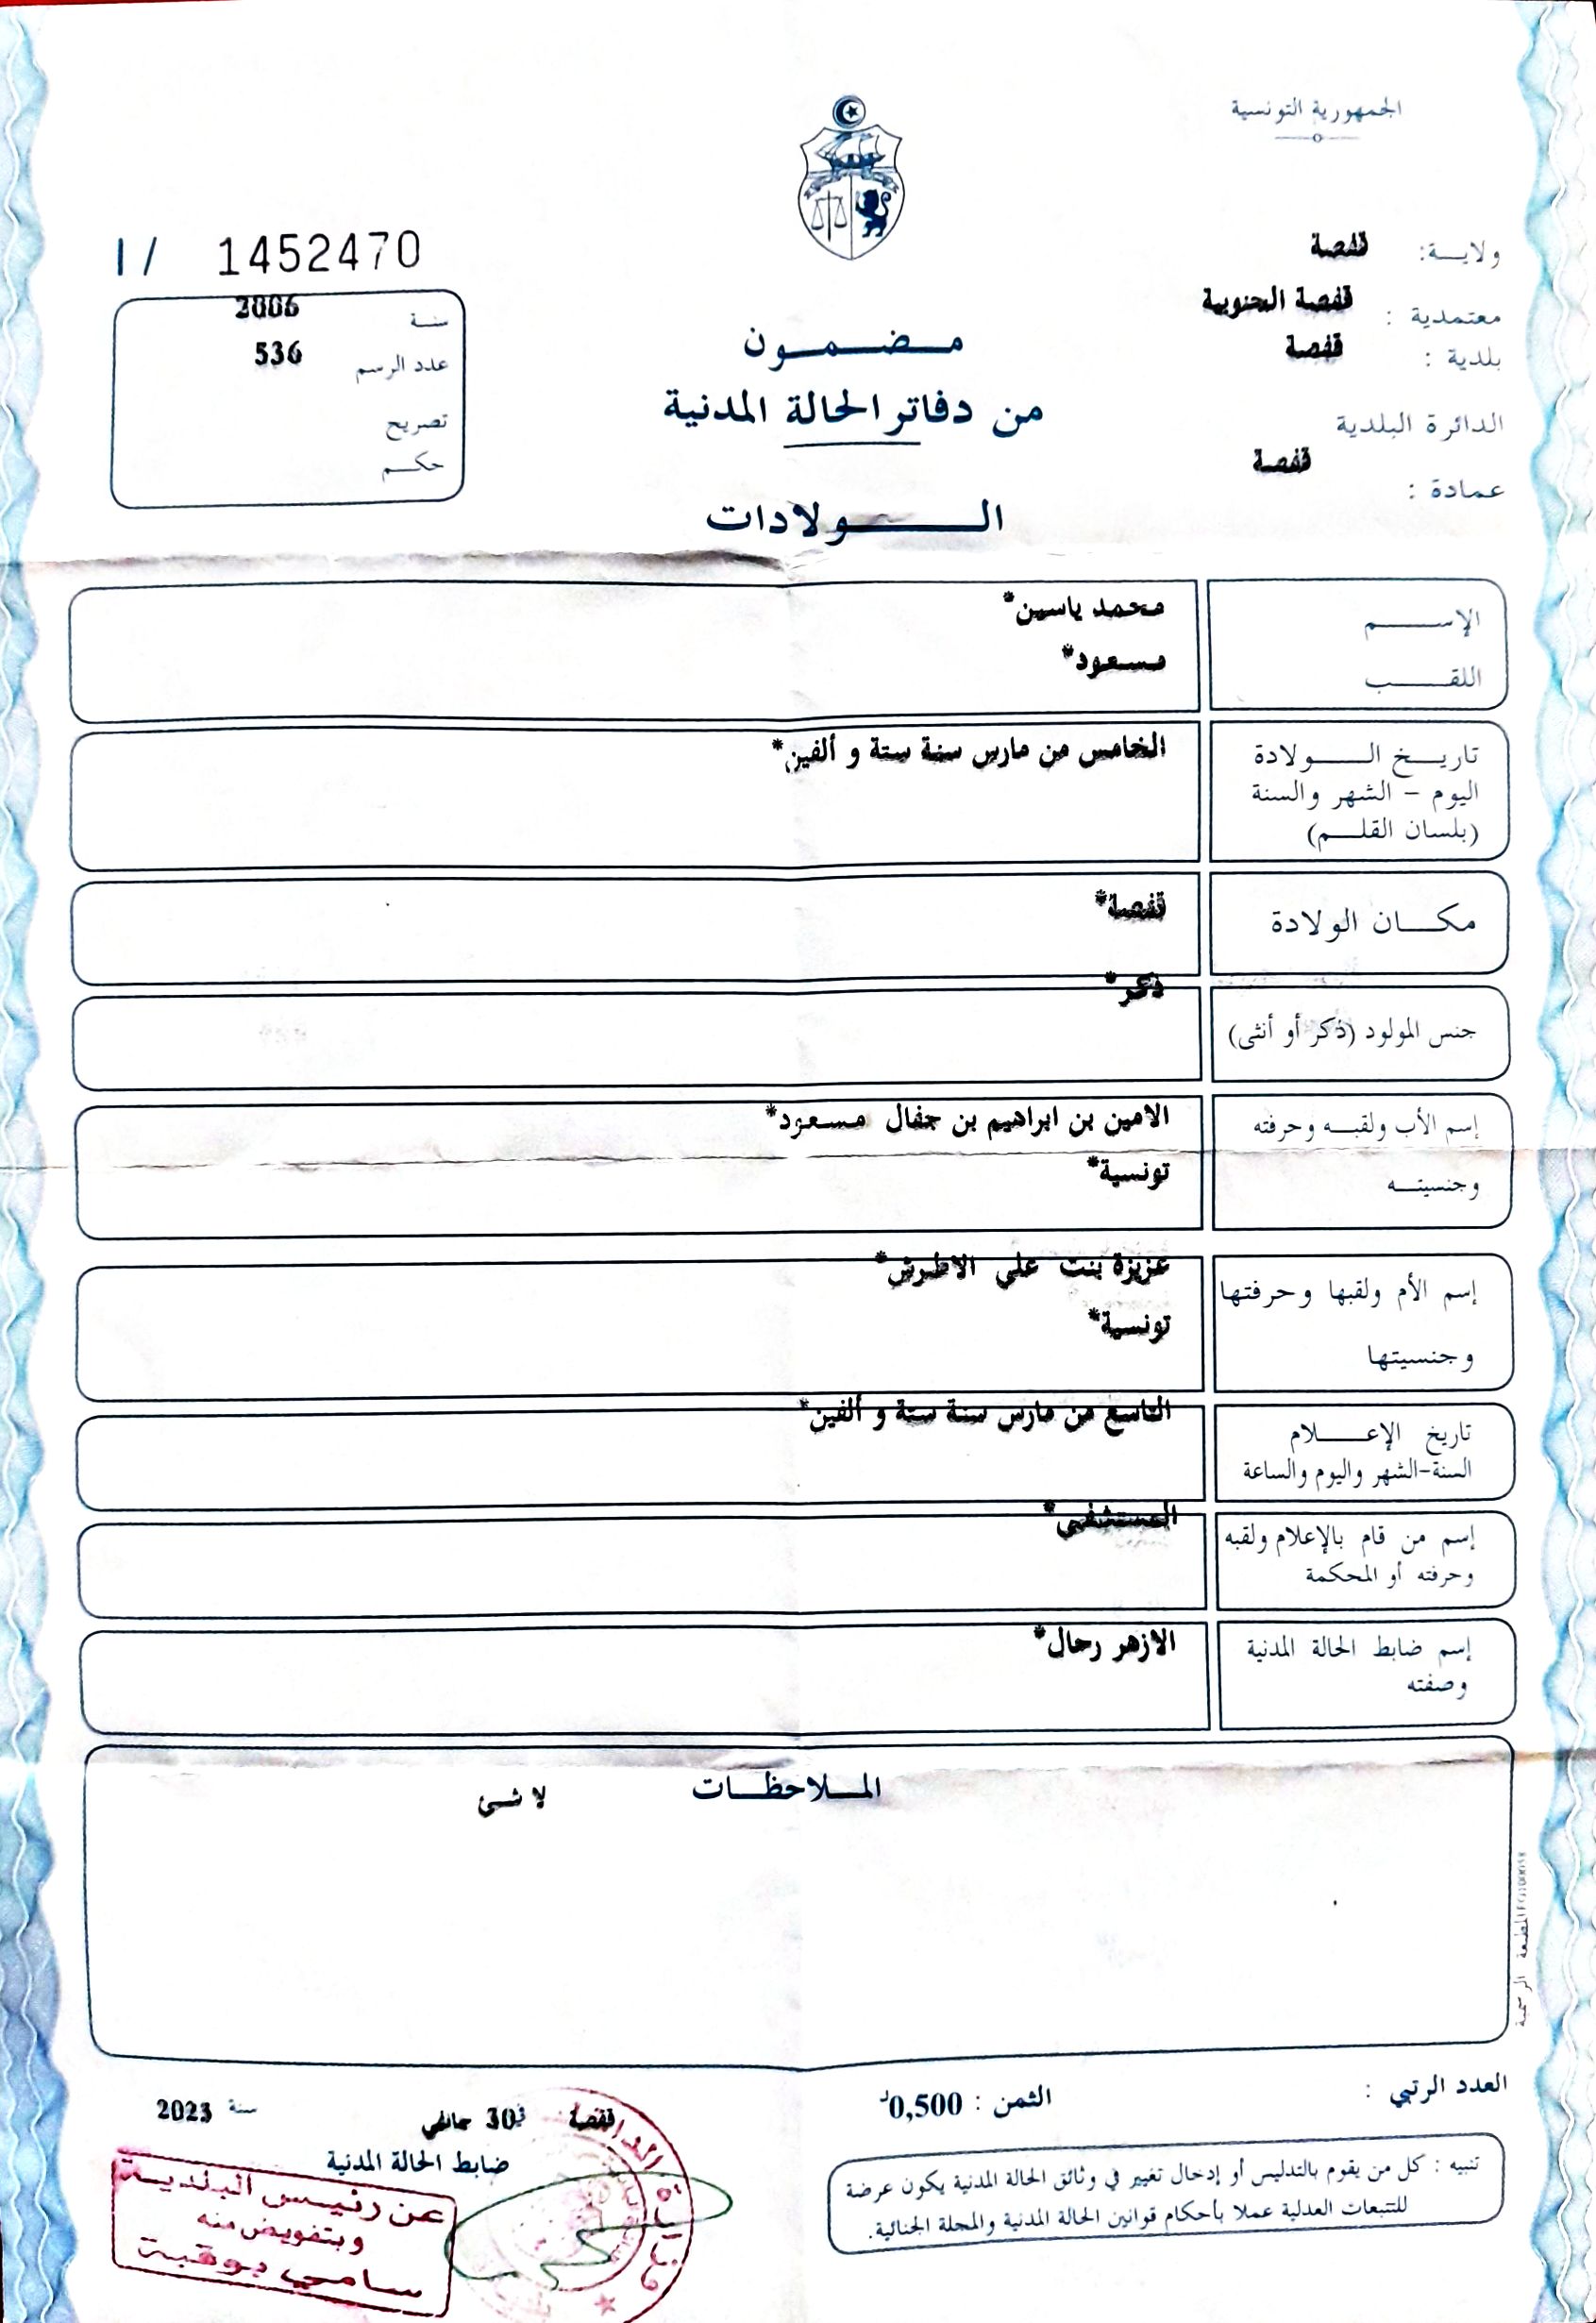 الجمهورية التونسية
ولايـــة: قفصة
معتمدية : قفصة الجنوبية
بلدية : قفصة
الدائرة البلدية
قفصة
عمادة :
I / 1452470
سنـة 2006
عدد الرسم 536
تصريح
حكـــم
مـــضـــمـــون
من دفاتر الحالة المدنية
الـــــولادات
الإســـــم محمد ياسين*
اللقــــب مسعود*
تاريـــخ الــــولادة الخامس من مارس سنة ستة و ألفين*
اليوم - الشهر والسنة
(بلسان القلـــم)
مكـــان الولادة قفصة*
ذكر*
جنس المولود (ذكر أو أنثى)
إسم الأب ولقبـــه وحرفته الامين بن ابراهيم بن جفال مسعود*
وجنسيتـــه تونسية*
إسم الأم ولقبها وحرفتها عزيزة بنت علي الاطرش*
وجنسيتها تونسية*
تاريخ الإعـــــلام التاسع من مارس سنة ستة و ألفين*
السنة-الشهر واليوم والساعة
إسم من قام بالإعلام ولقبه المستشفى*
وحرفته أو المحكمة
إسم ضابط الحالة المدنية الازهر رحال*
وصفته
المـــلاحظـــات لا شئ
المطبعة الرسمية
العدد الرتبي :
الثمن : 0,500د
تنبيه : كل من يقوم بالتدليس أو إدخال تغيير في وثائق الحالة المدنية يكون عرضة
للتتبعات العدلية عملا بأحكام قوانين الحالة المدنية والمجلة الجنائية.
قفصة في 30 جانفي سنة 2023
ضابط الحالة المدنية
عن رئيس البلدية
وبتفويض منه
سامي بوهبة